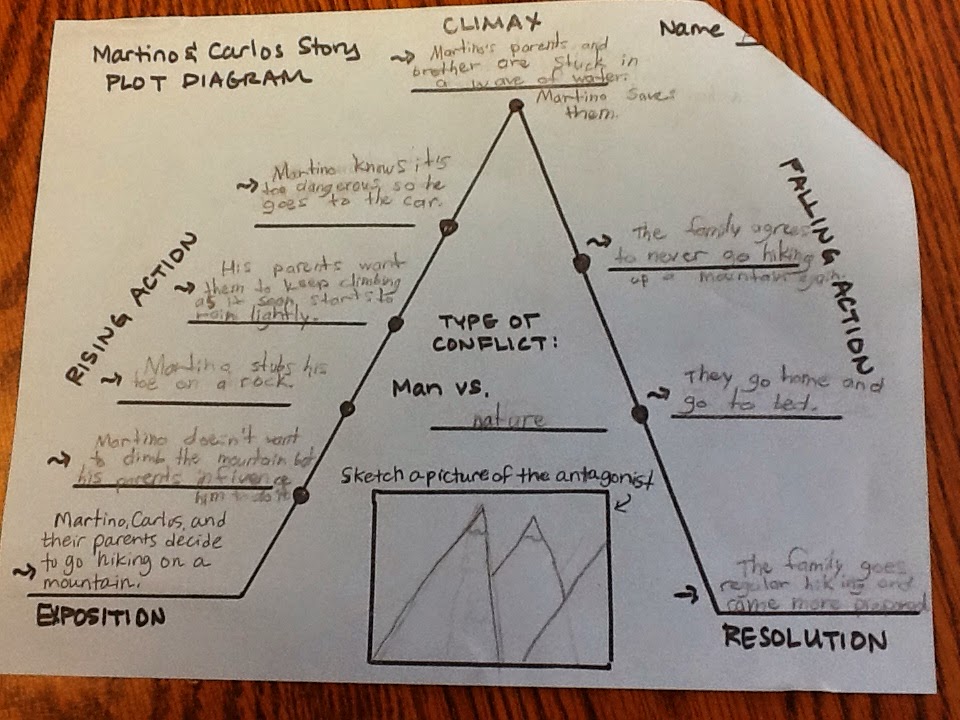 Martino & Carlos Story
PLOT DIAGRAM
Name
CLIMAX
Martino's parents and
brother are stuck in
a wave of water.
Martino saves
them.
Martino knows it's
too dangerous, so he
goes to the car.
RISING ACTION
His parents want
them to keep climbing
as it soon starts to
rain lightly.
Martino stubs his
toe on a rock.
Martino doesn't want
to climb the mountain but
his parents
him to do it
Martino, Carlos, and
their parents decide
to go hiking on a
mountain.
EXPOSITION
TYPE OF
CONFLICT:
Man vs.
nature
Sketch a picture of the antagonist
FALLING ACTION
The family agrees
to never go hiking
up a mountain again.
They go home and
go to bed.
The family goes
regular hiking and
came more prepared
RESOLUTION